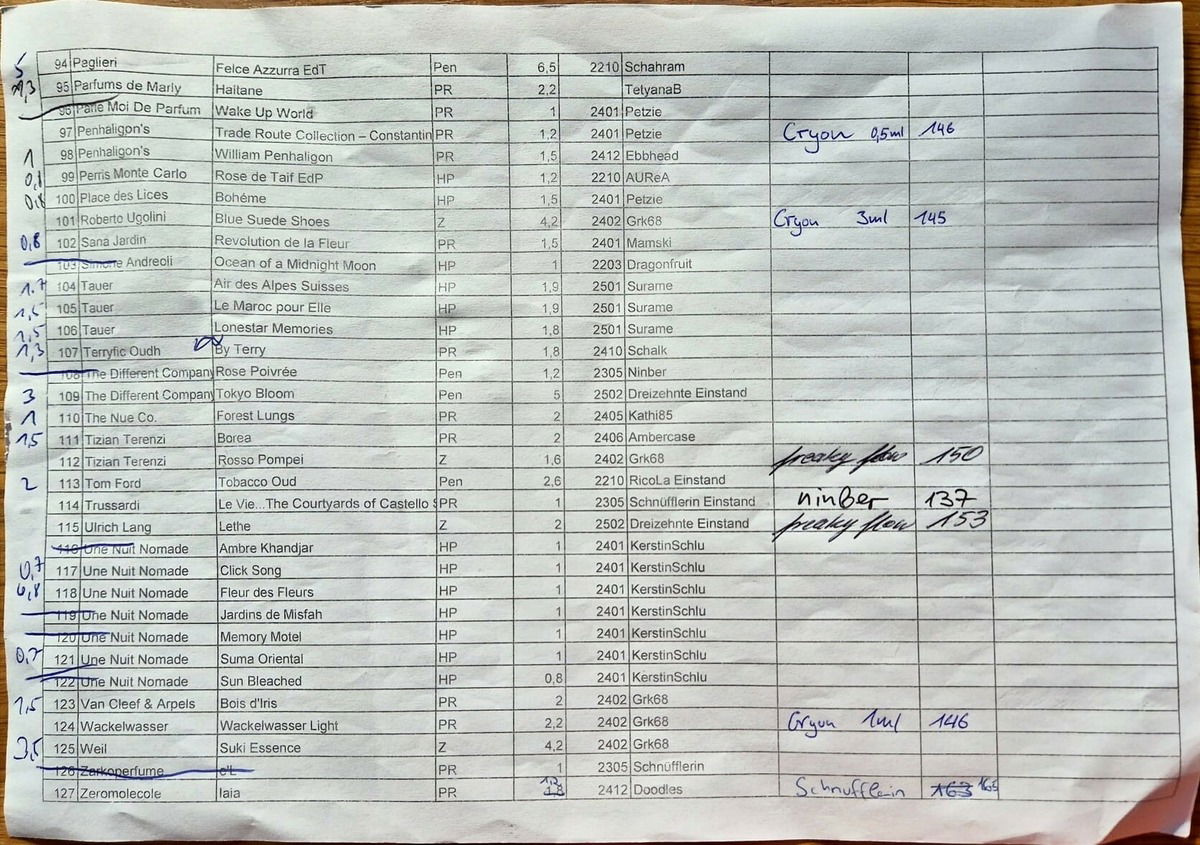 5 94 Paglieri Felce Azzurra EdT Pen 6,5 2210 Schahram
1,3 95 Parfums de Marly Haltane PR 2,2 TetyanaB
96 Parle Moi De Parfum Wake Up World PR 1 2401 Petzie
97 Penhaligon's Trade Route Collection – Constantin PR 1,2 2401 Petzie Cryon 0,5ml 146
1 98 Penhaligon's William Penhaligon PR 1,5 2412 Ebbhead
0,8 99 Perris Monte Carlo Rose de Taif EdP HP 1,2 2210 AUReA
0,8 100 Place des Lices Bohéme HP 1,5 2401 Petzie
101 Roberto Ugolini Blue Suede Shoes Z 4,2 2402 Grk68 Cryon 3ml 145
0,8 102 Sana Jardin Revolution de la Fleur PR 1,5 2401 Mamski
103 Simone Andreoli Ocean of a Midnight Moon HP 1 2203 Dragonfruit
1,7 104 Tauer Air des Alpes Suisses HP 1,9 2501 Surame
1,5 105 Tauer Le Maroc pour Elle HP 1,9 2501 Surame
1,5 106 Tauer Lonestar Memories HP 1,8 2501 Surame
1,3 107 Terryfic Oudh By Terry PR 1,8 2410 Schalk
108 The Different Company Rose Poivrée Pen 1,2 2305 Ninber
3 109 The Different Company Tokyo Bloom Pen 5 2502 Dreizehnte Einstand
1 110 The Nue Co. Forest Lungs PR 2 2405 Kathi85
1,5 111 Tizian Terenzi Borea PR 2 2406 Ambercase
112 Tizian Terenzi Rosso Pompei Z 1,6 2402 Grk68 freaky flow 150
2 113 Tom Ford Tobacco Oud Pen 2,6 2210 RicoLa Einstand
114 Trussardi Le Vie...The Courtyards of Castello S PR 1 2305 Schnüfflerin Einstand ninber 137
115 Ulrich Lang Lethe Z 2 2502 Dreizehnte Einstand freaky flow 153
116 Une Nuit Nomade Ambre Khandjar HP 1 2401 KerstinSchlu
0,7 117 Une Nuit Nomade Click Song HP 1 2401 KerstinSchlu
0,8 118 Une Nuit Nomade Fleur des Fleurs HP 1 2401 KerstinSchlu
119 Une Nuit Nomade Jardins de Misfah HP 1 2401 KerstinSchlu
120 Une Nuit Nomade Memory Motel HP 1 2401 KerstinSchlu
0,7 121 Une Nuit Nomade Suma Oriental HP 1 2401 KerstinSchlu
122 Une Nuit Nomade Sun Bleached HP 0,8 2401 KerstinSchlu
1,5 123 Van Cleef & Arpels Bois d'Iris PR 2 2402 Grk68
124 Wackelwasser Wackelwasser Light PR 2,2 2402 Grk68 Cryon 1ml 146
3,5 125 Weil Suki Essence Z 4,2 2402 Grk68
126 Zarkoperfume e'L PR 1 2305 Schnüfflerin
127 Zeromolecole Iaia PR 1,2 1,8 2412 Doodles Schnufflein 163 165